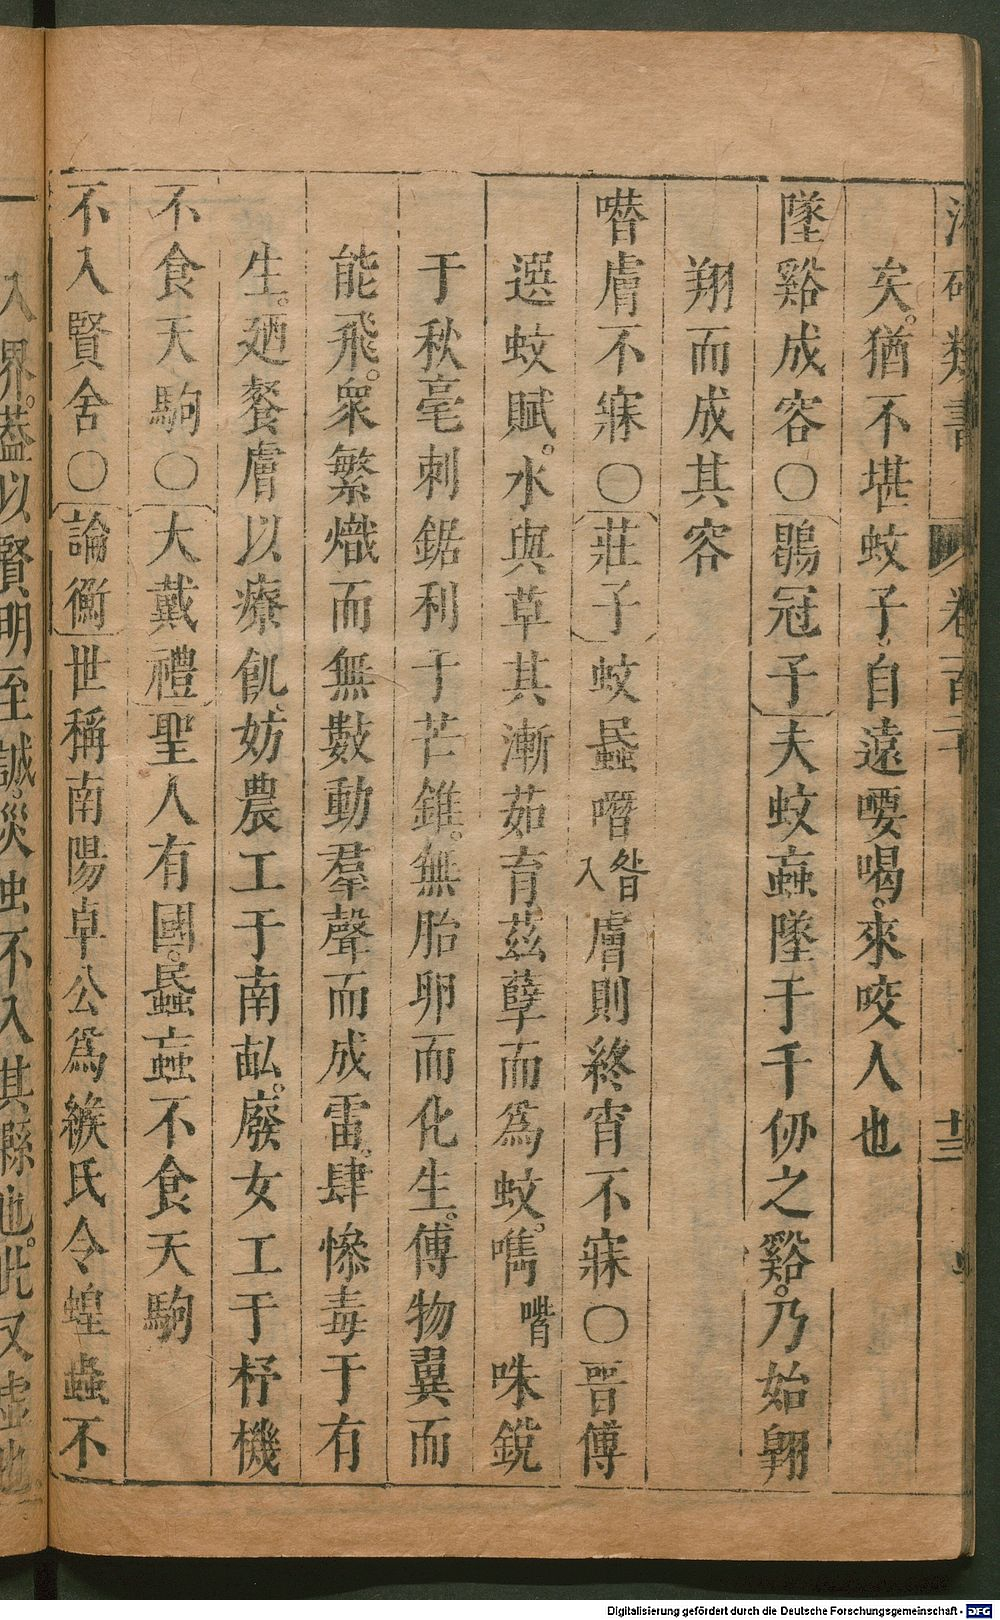 類書 卷 十三
矣。猶不堪蚊子。自遠嘤喝。來咬人也
墜谿成容〇鶡冠子夫蚊䖟墜于千仞之谿。乃始翱
翔而成其容
噆膚不寐〇莊子蚊䖟噆昝入膚則終宵不寐〇晉傅
選蚊賦。水與草其漸茹育茲孽而為蚊。嘴嘴咮銳
于秋毫刺鋸利于芒錐。無胎卵而化生。傅物翼而
能飛。眾繁熾而無數動羣聲而成雷。肆慘毒于有
生。廼餐膚以療飢。妨農工于南畝。廢女工于杼機
不食天駒〇大戴禮聖人有國。䘉䖟不食天駒
不入賢舍〇論衡世稱南陽卓公為緱氏令蝗蟲不
入界。葢以賢明至誠。災虫不入其縣也。此又虛也。
Digitalisierung gefördert durch die Deutsche Forschungsgemeinschaft - DFG